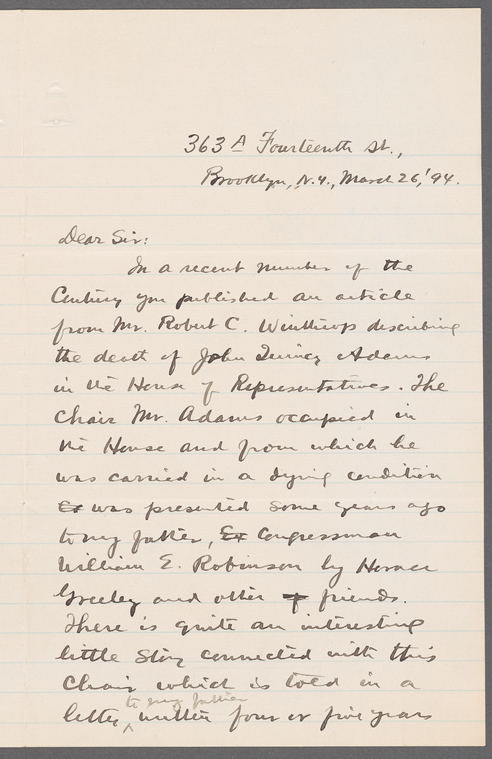 363 A Fourteenth St.,
Brooklyn, N.Y., March 26,'94.
Dear Sir:
In a recent number of the
Century you published an article
from Mr. Robert C. Winthrop describing
the death of John Quincy Adams
in the House of Representatives. The
Chair Mr. Adams occupied in
the House and from which he
was carried in a dying condition
was presented some years ago
to my father, Ex Congressman
William E. Robinson by Horace
Greeley and other friends.
There is quite an interesting
little story connected with this
Chair which is told in a
to my father
letter, written four or five years